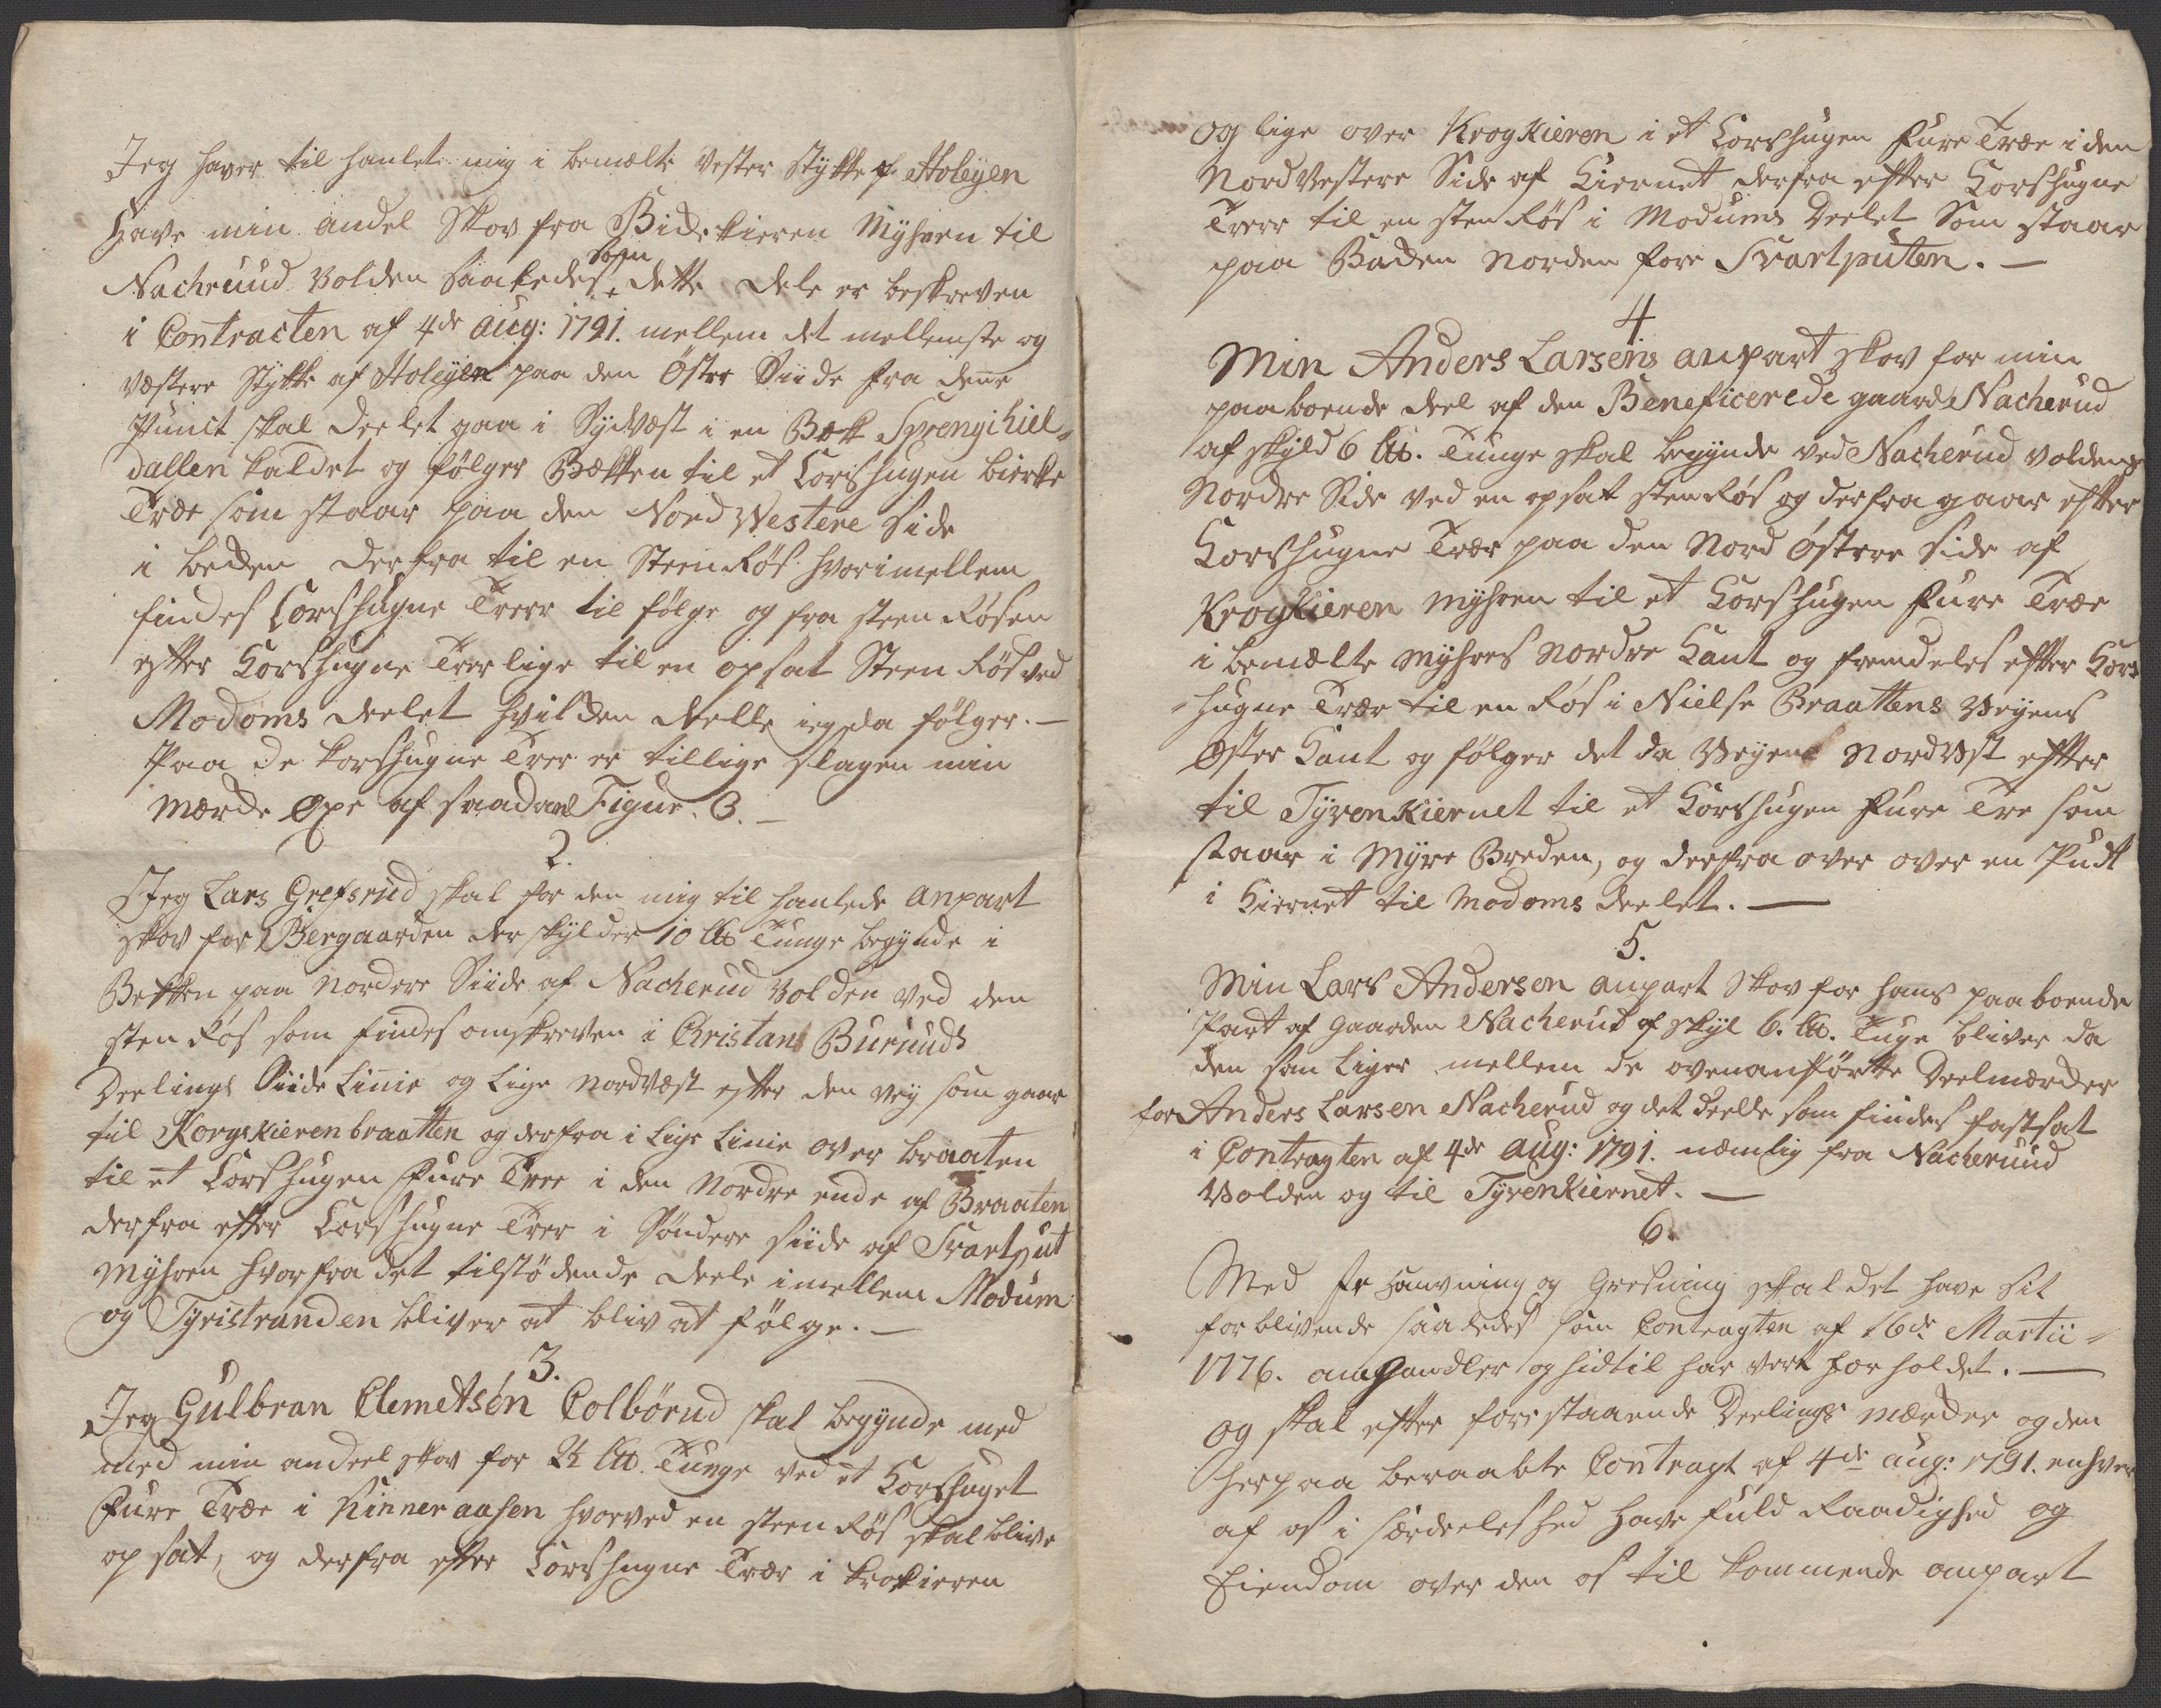 Jeg haver til hanlet mig i bemelte Vester Stykke af Holeyen
Have min andel Skov fra Bidekieren Myhren til
Nachruud Volden saaledes som dette dele er beskreven
i Contracten af 4de Aug: 1791. mellem det mellemste og
væstere Stykke af Holeyen paa den Östre Siide fra dene
Punct skal deelet gaa i Sydvæst i en Bek Sprengihiel„
dallen kaldet og fölger Bekken til et Corshugen bierke
Træe som staar paa den Nord Westene Side
i bekken derfra til en Steen Rös hvorimellem
findes Corshugne Treer til fölge og fra steen Rösen
efter Korshugne Treer lige til en opsat Steen Rös ved
Modoms deelet hvilken deelle ieg da fölger. —
Paa de korshugne Treer er tillige slagen min
Mærke Öxe af saadan Figur. B. —
2.
Jeg Lars Grefsrud skal for den mig til hanlede anpart
skov for Bergaarden der skylder 10 lb Tunge begynde i
Bekken paa Nordere Siide af Nacherud Volden ved den
sten Rös som findes omskreven i Christans Buruuds
Deelings Siide Linie og Lige Nordvæst efter den vey som gaar
til Korgekierenbraatten og derfra i Lige Linie over braaten
til et Corshugen Fure Tree i den Nordre ende af Braaten
derfra efter Corshugne Treer i Söndere siide af Svartput
Myhren hvorfra det tilstödende deele imellem Modum
og Tyristranden bliver at bliv at fölge. —
3.
Jeg Gulbran Clemetsén Colbörud skal begynde med
med min andeel skov for 2½ lb. Tunge ved et Korshuget
Fure Træe i Kinneraasen hvorved en steen Rös skal blive
opsat, og derfra efter Corshugne Træer i krokieren
og lige over Krogkieren i et Corshugen Fure Træe i den
Nord Vestere Side af Kiernet derfra efter Korshugne
Treer til en sten Rös i Modums Deelet Som staar
paa Bakken Norden fore Svartputen. —
4
Min Anders Larsens anpart skov for min
paaboende deel af den Beneficerede gaard Nacherud
af skyld 6 lb. Tunge skal begynde ved Nacherud voldens
Nordre Side ved en opsat sten Rös og derfra gaar efter
Korshugne Træer paa den Nord Östere side af
Krogkieren Myhren til et Korshugen Fure Træe
i bemelte Myhres Nordre Kant og fremdeles efter Kors
„hugne Træer til en Rös i Nielse Braattens Veyens
Öster Kant og fölger det da Veyens Nordvst efter
til Tyrenkiernet til et Korshugen Fure Tre som
staar i Myre Breden, og derfra over over en Pudt
i Kiernet til Modoms deelet. —
5.
Min Lars Andersen anpart Skov for hans paaboende
Part af Gaarden Nacherud af skyl 6. lb. Tuge bliver da
den som Liger mellem de ovenanförtte Deelmærker
for Anders Larsen Nacherud og det deelle som findes fastsat
i Contragten af 4de Aug: 1791. nemlig fra Nacheruud
Volden og til Tyrenkiernet. —
6.
Med Fe Havning og Gresning skal det have sit
forblivende saaledes som Contragten af 16de Martii„
1776. omhandler og hidtil har vert forholdet. —
og skal efter forestaaende Deelings Mærker og den
herpaa beraabte Contragt af 4de Aug: 1791. enhver
af os i særdeleshed have fuld Raadighed og
Eiendom over den os til kommende anpart